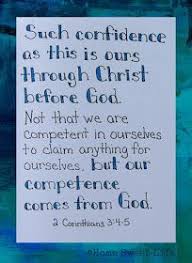 Such confidence
as this is ours
through Christ
before God.
Not that we are
competent in ourselves
to claim anything for
ourselves, but our
competence
comes from God.
2 Corinthians 3:4-5